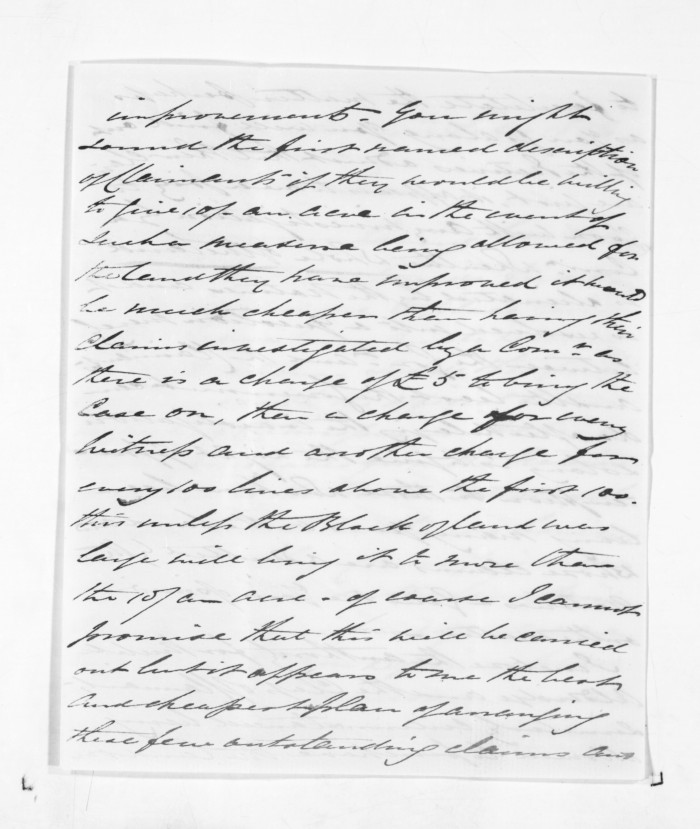 improvement. You might
sound the first named description
of Claimants if they would be willing
to give 10/- an acre in the event of
such a measure being allowed for
the land they have improved it would
be much cheaper than having their
claims investigated by a Comr. as
there is a charge of £5 to bring the
Case on, then a charge for every
Witness and another charge for
every 100 lines above the first 100.
this unless the Block of land was
large will bring it to more than
the 10/ an acre - of course I cannot
promise that this will be carried
out but it appears to me the best
and cheapest plan of arranging
these few outstanding claims and